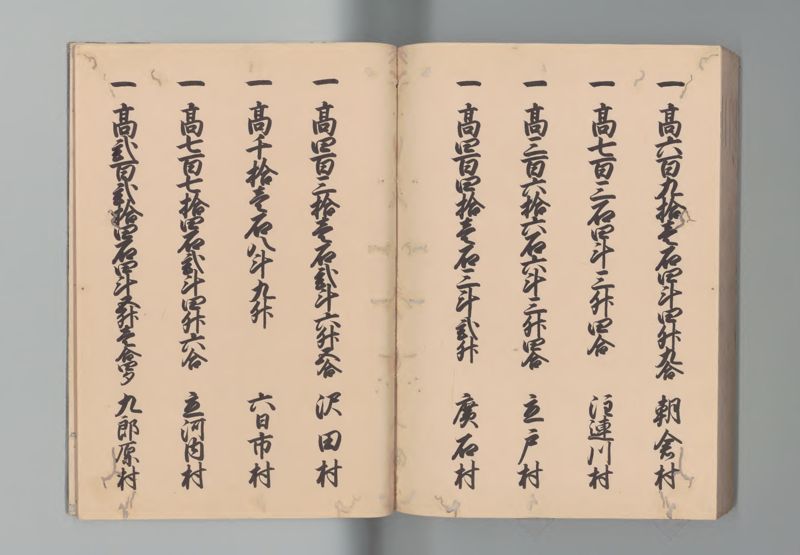 一 高六百九拾壱石四斗四升九合 朝倉村
一 高七百三石四斗三升四合 注連川村
一 高三百六拾六石六斗三升四合 立戸村
一 高四百四拾壱石三斗弐升 廣石村
一 高四百三拾壱石弐斗六升五合 沢田村
一 高千拾壱石八斗九升 六日市村
一 高七百七拾四石弐斗四升六合 立河内村
一 高弐百弐拾四石四斗五升壱合四夕 九郎原村